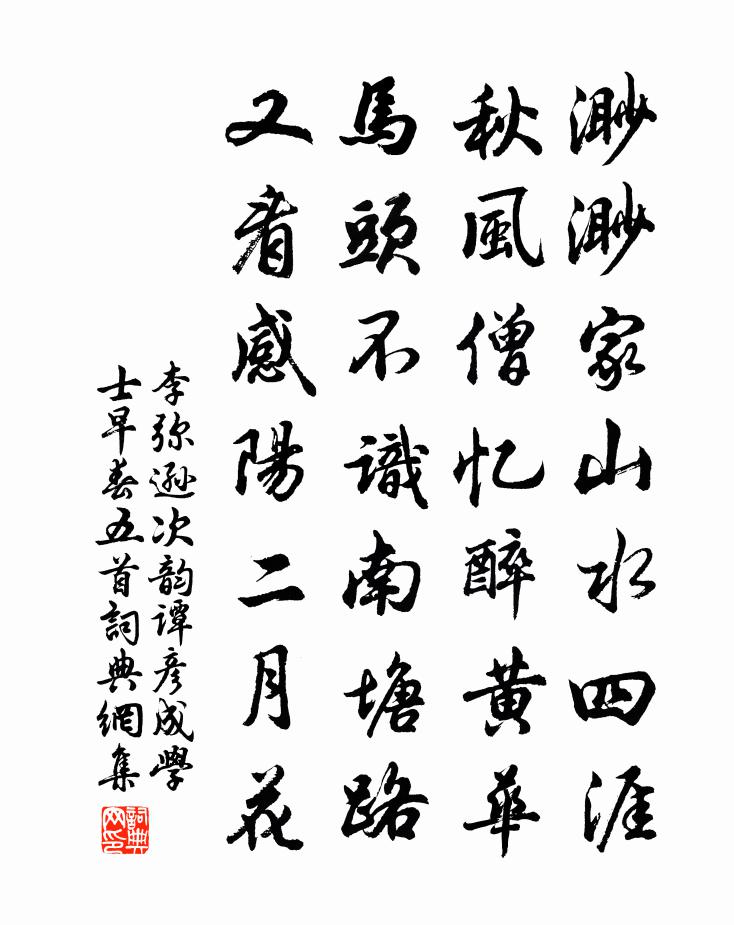 渺渺家山水四涯
秋風僧忆醉黄華
馬頭不識南塘路
又看感陽二月花
李弥遜次韵谭彦成學
士早春五首詞典網集
詞典
网印